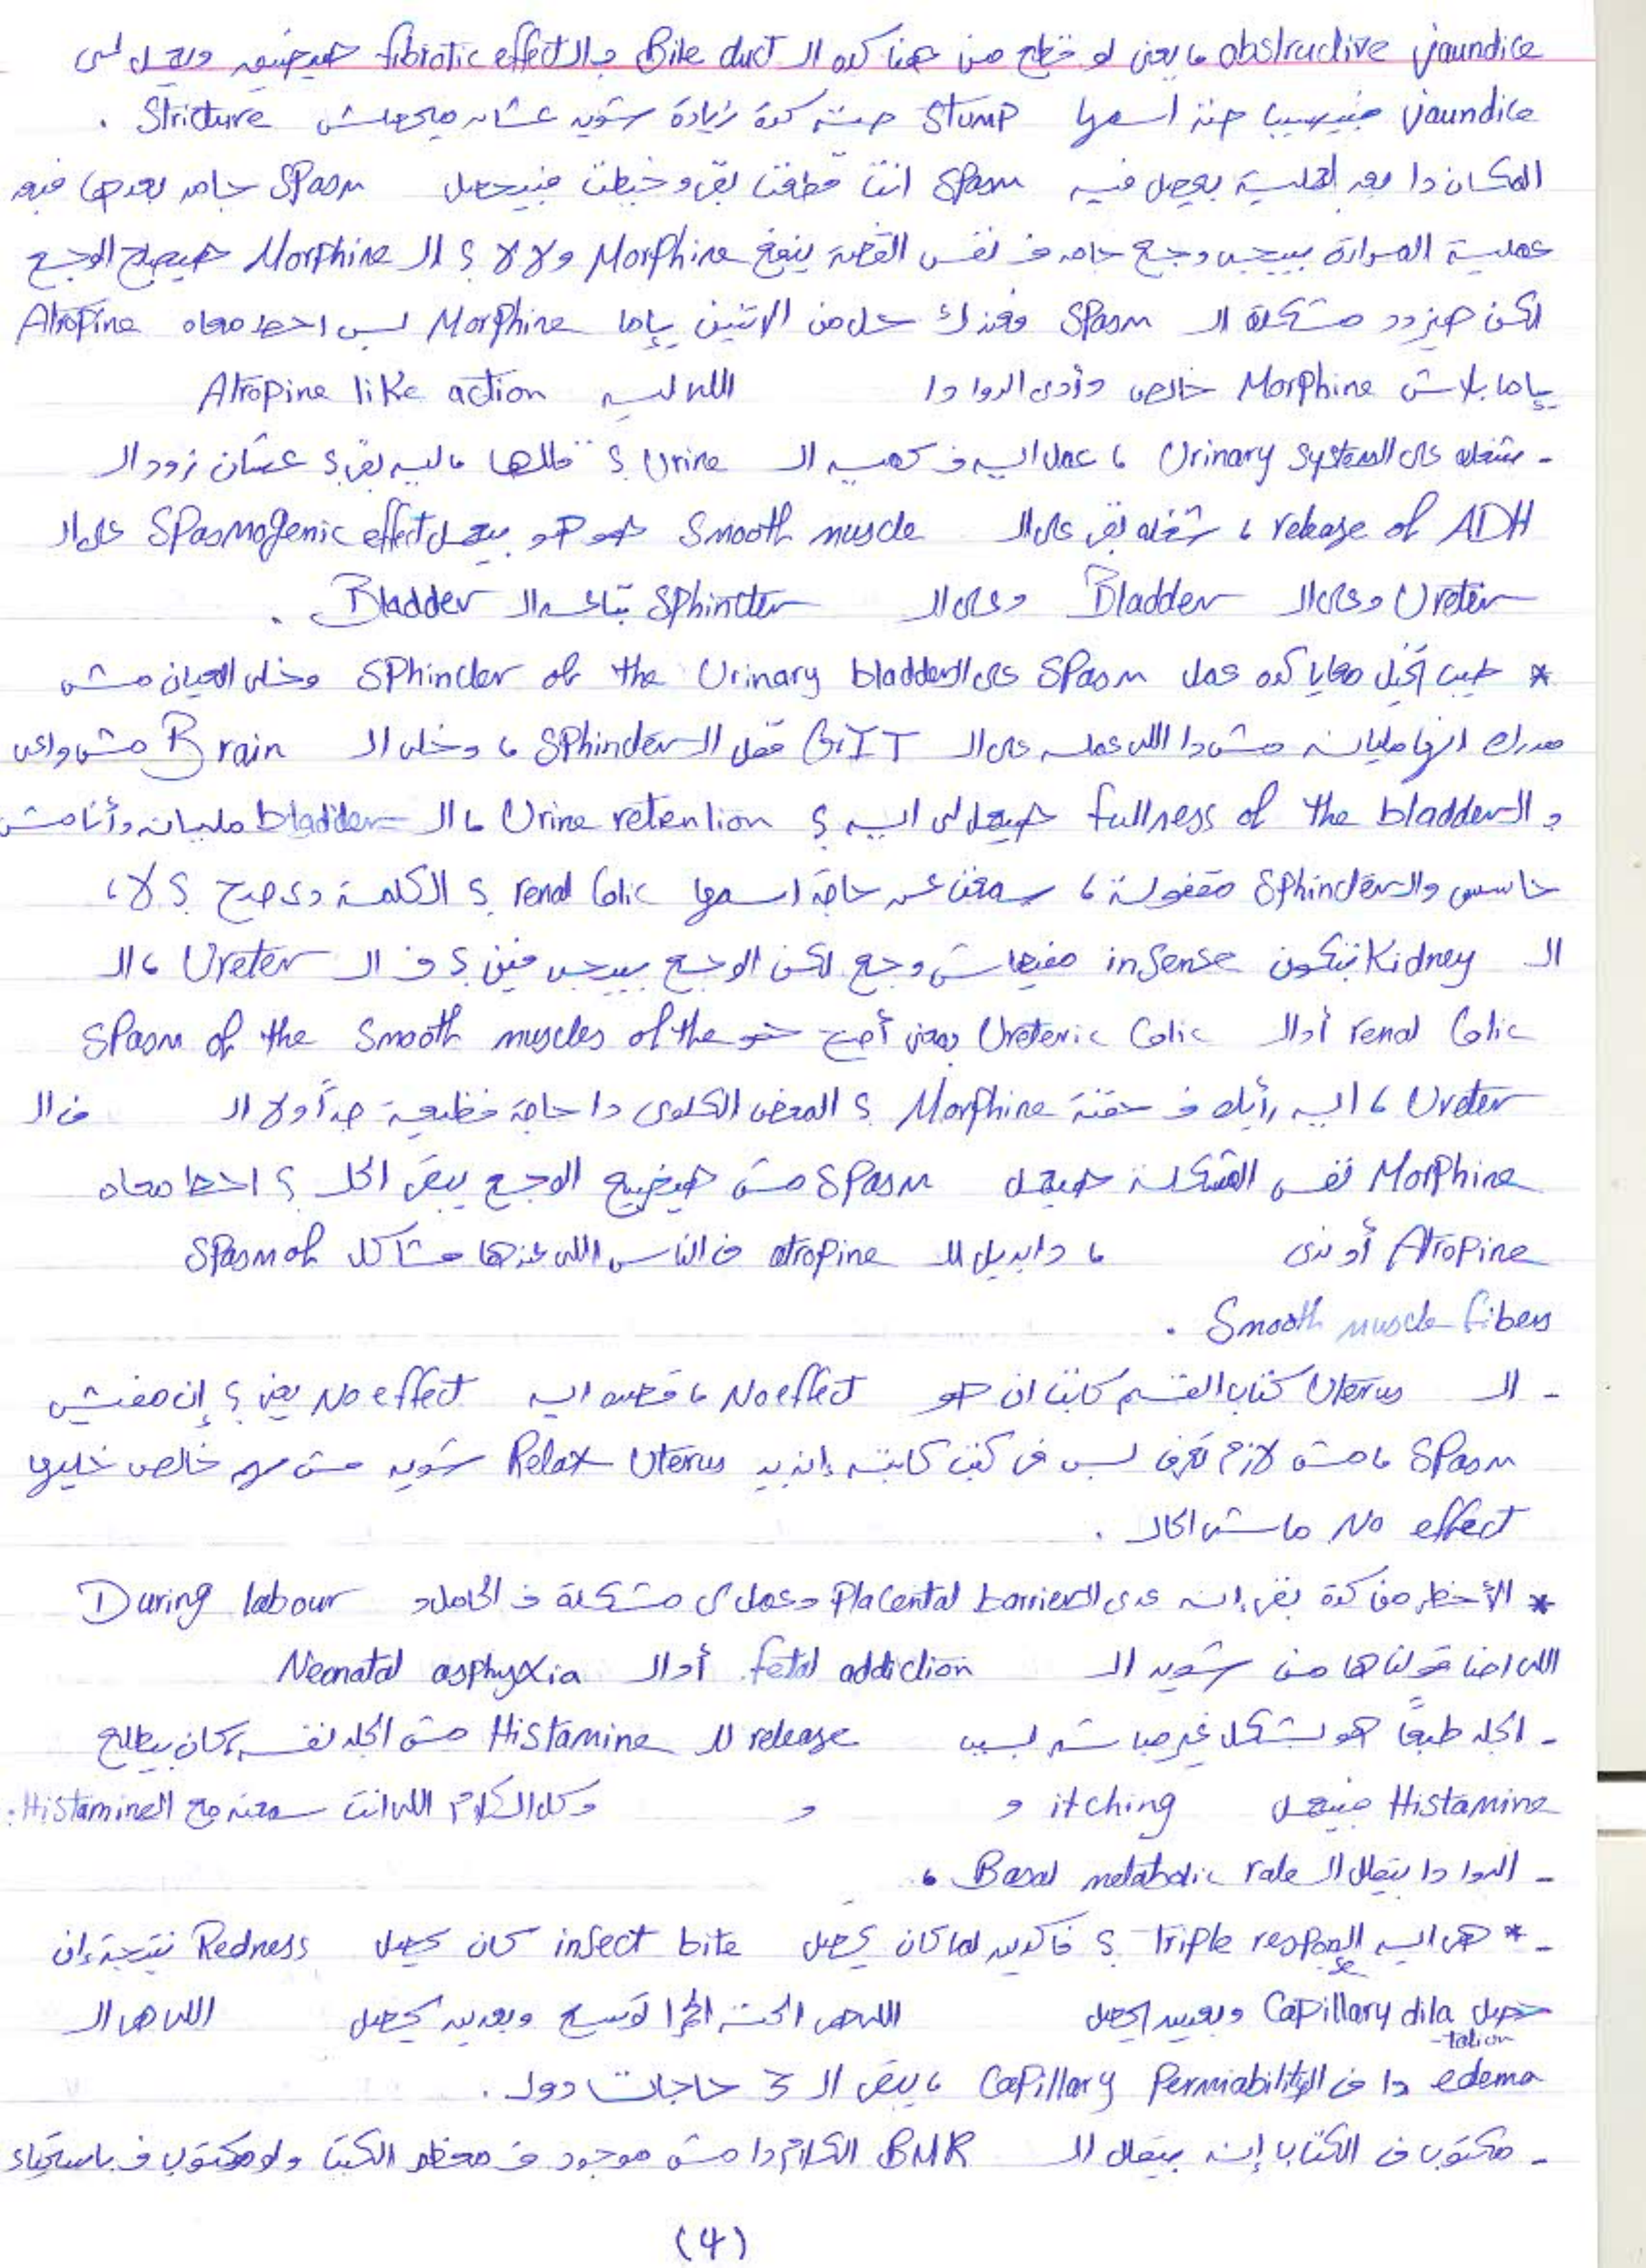 obstructive jaundice ، يعنى لو قطع من هنا كده الـ Bile duct و الـ fibrotic effect هيضيق ويعمل لى
jaundice فبيسيب حتة اسمها stump حتة كدة زيادة شويه عشان ميحصلش Stricture .
المكان دا بعد العملية بيحصل فيه spasm انت قطعت بقى وخيطت فبيحصل spasm جامد بعدها فبعد
عملية المرارة بييجى وجع جامد فـ نفس القصة ينفع Morphine ولا لا ؟ الـ Morphine هيضيع الوجع
لكن هيزود مشكلة الـ Spasm فعندك حل من الاتنين ياإما Morphine بس احط معاه Atropine
ياإما بلاش Morphine خالص وأدى الدوا دا اللى ليه Atropine like action
- شغله على الـ Urinary system ، عمل ايه فـ كمية الـ Urine ؟ قللها ، ليه بقى ؟ عشان زود الـ
release of ADH ، شغله بقى على الـ Smooth muscle هو هو بيعمل Spasmogenic effect على الـ
Ureter وعلى الـ Bladder وعلى الـ sphincter بتاعـة الـ Bladder .
* طيب تخيل معايا كده عمل Spasm على الـ sphincter of the Urinary bladder وخلى العيان مش
مدرك انها مليانه مش دا اللى عمله على الـ G.I.T قفل الـ sphincter ، وخلى الـ Brain مش واعى
و الـ fullness of the bladder هيعمل لى ايه ؟ Urine retention ، الـ bladder مليانه وأنا مش
حاسس والـ sphincter مقفولة ، سمعت عن حاجة اسمها renal colic ؟ الكلمة دى صح ؟ لا ،
الـ Kidney بتكون insense مفيهاش وجع لكن الوجع بييجى فين ؟ فـ الـ Ureter ، الـ
renal colic أو الـ Ureteric colic بمعنى أصح هو spasm of the smooth muscles of the
Ureter ، ايه رأيك فـ حقنة Morphine ؟ المغص الكلوى دا حاجة فظيعة جداً ولا الـ فى الـ
Morphine نفس المشكلة هيعمل spasm مش هيضيع الوجع يبقى الحل ؟ احط معاه
Atropine أو ندى ، دا بديل للـ atropine فى الناس اللى عندها مشاكل spasm of
Smooth muscle fibers .
- الـ Uterus كتاب القسم كاتب ان هو No effect ، قصده ايه No effect يعنى ؟ إن مفيش
spasm ، مش لازم تعرف بس فى كتب كاتبه إنه بيـ Relax Uterus شويه مش مهم خالص خليها
No effect ماشى الحال .
* الأخطر من كدة بقى إنه عدى الـ Placental barrier وعمل لى مشكلة فـ الحامل و During labour
اللى احنا قولناها من شويه الـ fetal addiction أو الـ Neonatal asphyxia
- الجلد طبعاً هو بشكل غير مباشر بسبب release للـ Histamine مش الجلد نفسه كان بيطلع
Histamine فبيعمل itching و و وكل الكلام اللى انت سمعته مع الـ Histamine .
- الدوا دا بيقلل الـ Basal metabolic rate ،
-* هى ايه الـ Triple response ؟ فاكرين لما كان يحصل insect bite كان يحصل Redness نتيجة إن
حصل Capillary dilatation وبعدين يحصل اللى هى الحتة الحمرا توسع وبعدين يحصل اللى هى الـ
edema دا فى الـ Capillary Permiability ، يبقى الـ 3 حاجات دول .
- مكتوب فى الكتاب إنه بيقلل الـ BMR الكلام دا مش موجود فـ معظم الكتب ولو مكتوب فـ باستحياء
(4)